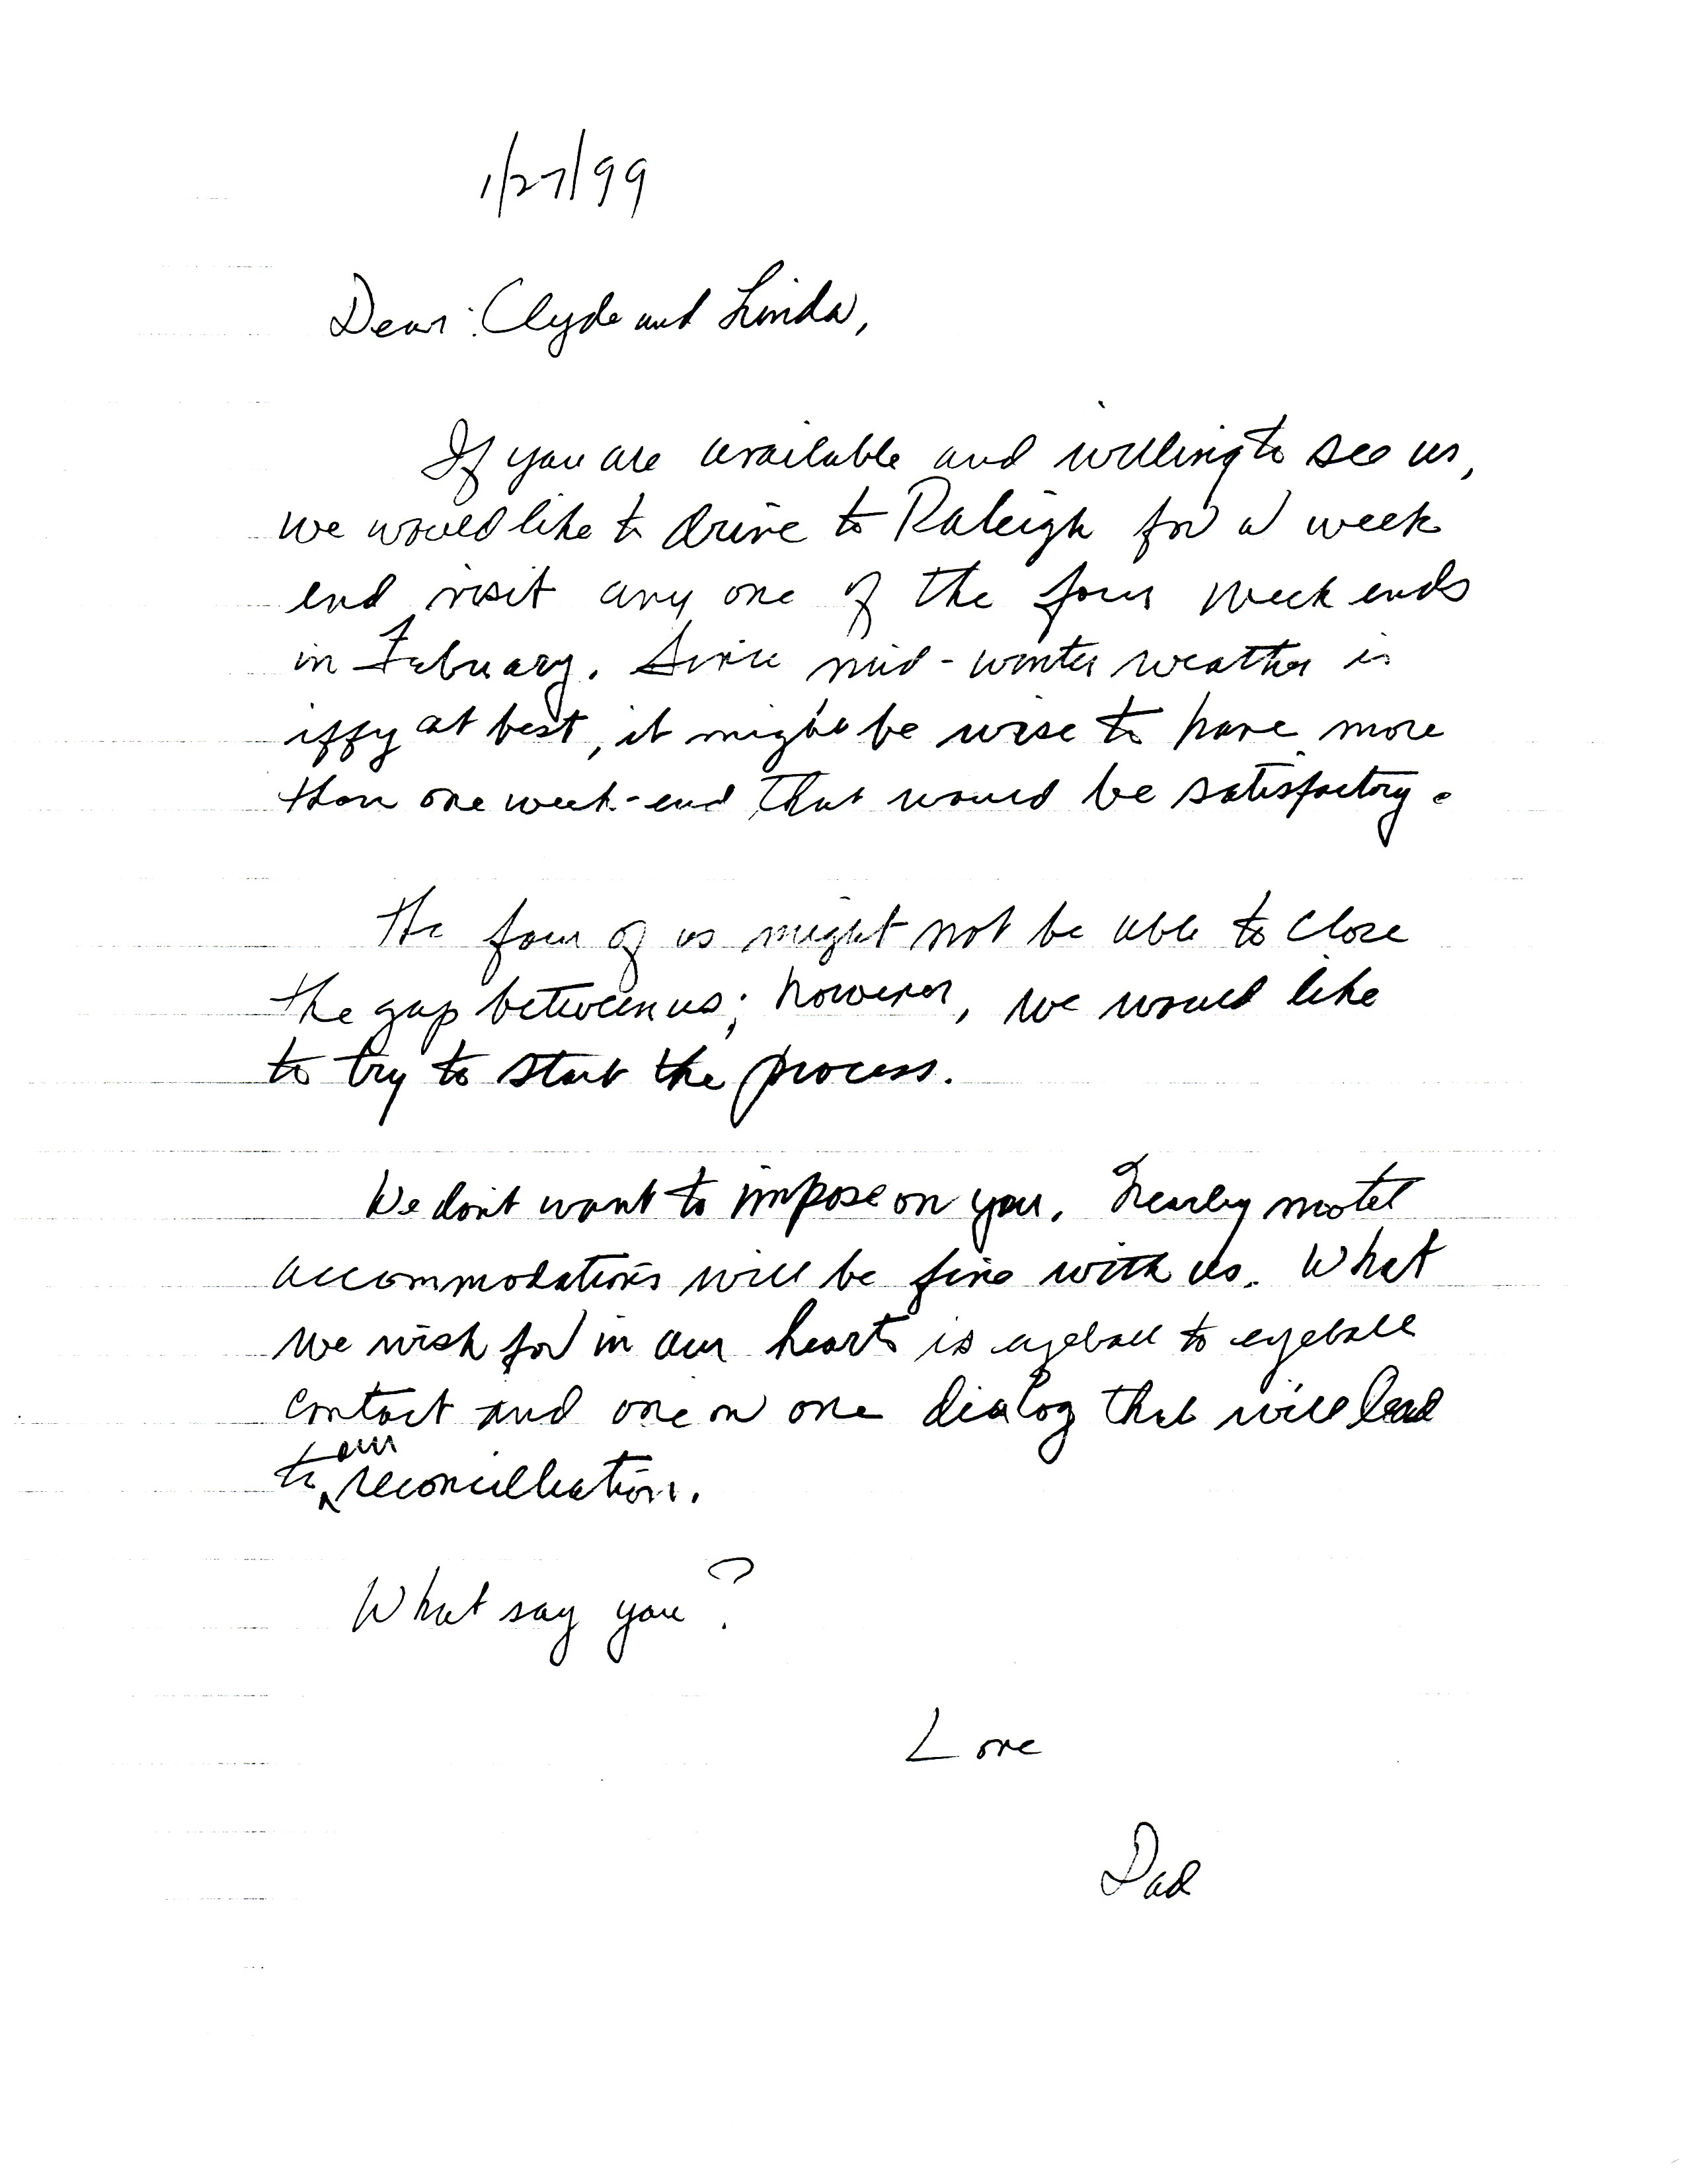 1/27/99
Dear: Clyde and Linda,
If you are available and willing to see us,
we would like to drive to Raleigh for a week
end visit any one of the four week ends
in February. Since mid-winter weather is
iffy at best, it might be wise to have more
than one week-end that would be satisfactory.
The four of us might not be able to close
the gap between us; however, we would like
to try to start the process.
We don't want to impose on you. Nearby motel
accommodations will be fine with us. What
we wish for in our hearts is eyeball to eyeball
contact and one on one dialog that will lead
to our reconcilliation.
What say you?
Love
Dad